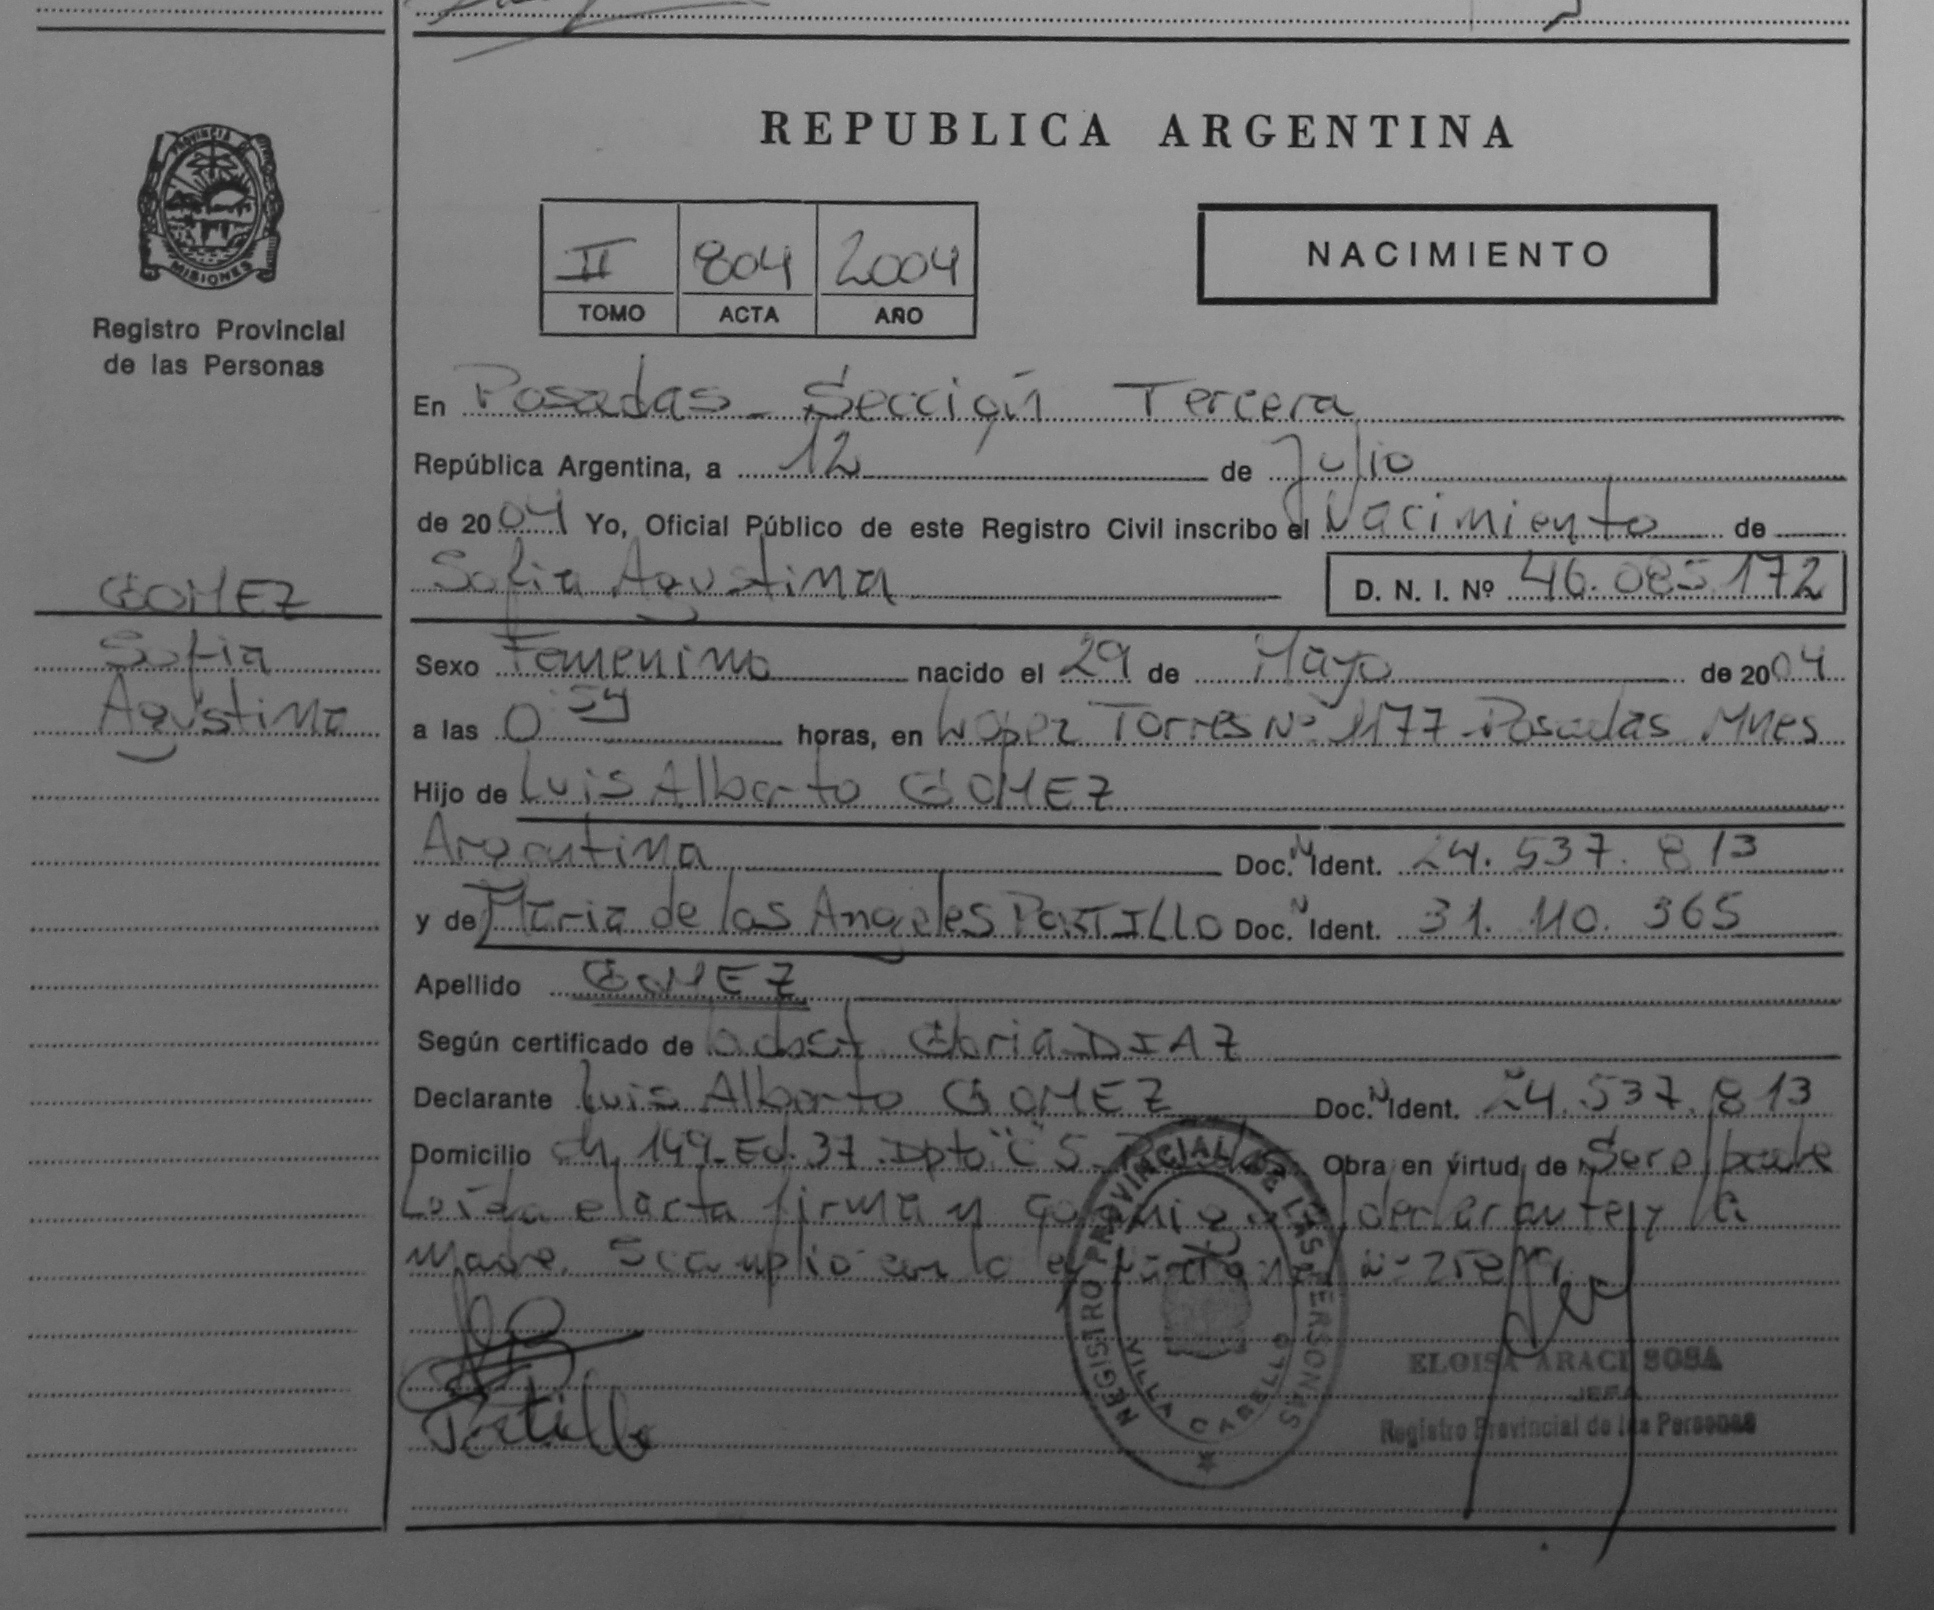 PROVINCIA DE
MISIONES
Registro Provincial
de las Personas
GOMEZ
Sofia
Agustina
REPUBLICA ARGENTINA
II 804 2004
TOMO ACTA AÑO
NACIMIENTO
En Posadas - Sección Tercera
República Argentina, a 12 de Julio
de 2004 Yo, Oficial Público de este Registro Civil inscribo el Nacimiento de
Sofia Agustina D. N. I. Nº 46.085.172
Sexo Femenino nacido el 29 de Mayo de 2004
a las 0 59 horas, en López Torres Nº 1177 Posadas Mnes
Hijo de Luis Alberto GOMEZ
Argentina Doc. N Ident. 24.537.813
y de Maria de los Angeles PORTILLO Doc. N Ident. 31.110.365
Apellido GOMEZ
Según certificado de obst. Gloria DIAZ
Declarante Luis Alberto GOMEZ Doc. N Ident. 24.537.813
Domicilio Ch. 149 - Ed. 37 Dpto "C" Obra en virtud de Ser el padre
Leída el acta firman conmigo el declarante y la
madre. Se cumplió con la
Portillo
REGISTRO PROVINCIAL DE LAS PERSONAS
VILLA CABELLO
ELOISA ARACI SOSA
JEFA
Registro Provincial de las Personas